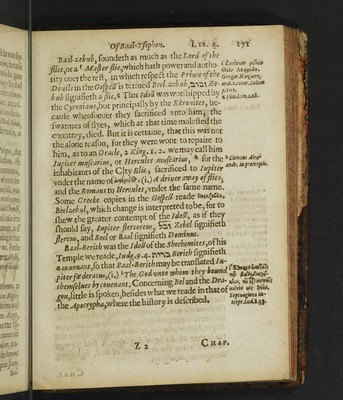 Of Baal-Tsephon. Lib. 4. 171
Baal-zebub, soundeth as much as the Lord of the
flies, or a Master flie, which hath power and autho-
rity over the rest, in which respect the Prince of the
Devils in the Gospell is termed Beel-zebub,
bub signifieth a flie. This Idoll was worshipped by
the Cyrenians, but principally by the Ekronites, be-
cause whensoever they sacrificed unto him, the
swarmes of flyes, which at that time molested the
country, died. But it is certaine, that this was not
the alone reason, for they were wont to repaire to
him, as to an Oracle, 2 King. 1. 2. we may call him
Iupiter muscarius, or Hercules muscarius, for the
inhabitants of the City Elis, sacrificed to Iupiter
under the name of (i.) A driver away of flies,
and the Romans to Hercules, under the same name.
Some Greeke copies in the Gospell reade
Beelzebul, which change is interpreted to be, for to
shew the greater contempt of the Idoll, as if they
should say, Iupiter stercoreus, זבל Zebel signifieth
stercus, and Beel or Baal signifieth Dominus.
Baal-Berith was the Idoll of the Shechemites, of his
Temple we reade, Iudg. 9. 4. ברית Berith signifieth
a covenant, so that Baal-Berith may be translated Iu-
piter fœderatus, (i.) The God unto whom they bound
themselves by covenant. Concerning Bel and the Dra-
gon, little is spoken, besides what we reade in that of
the Apocrypha, where the history is described.
Clemens Alex-
andr. in protrept.
Septuaginta in-
terpr. Iud. 8. 33.
Z 2 CHAP.